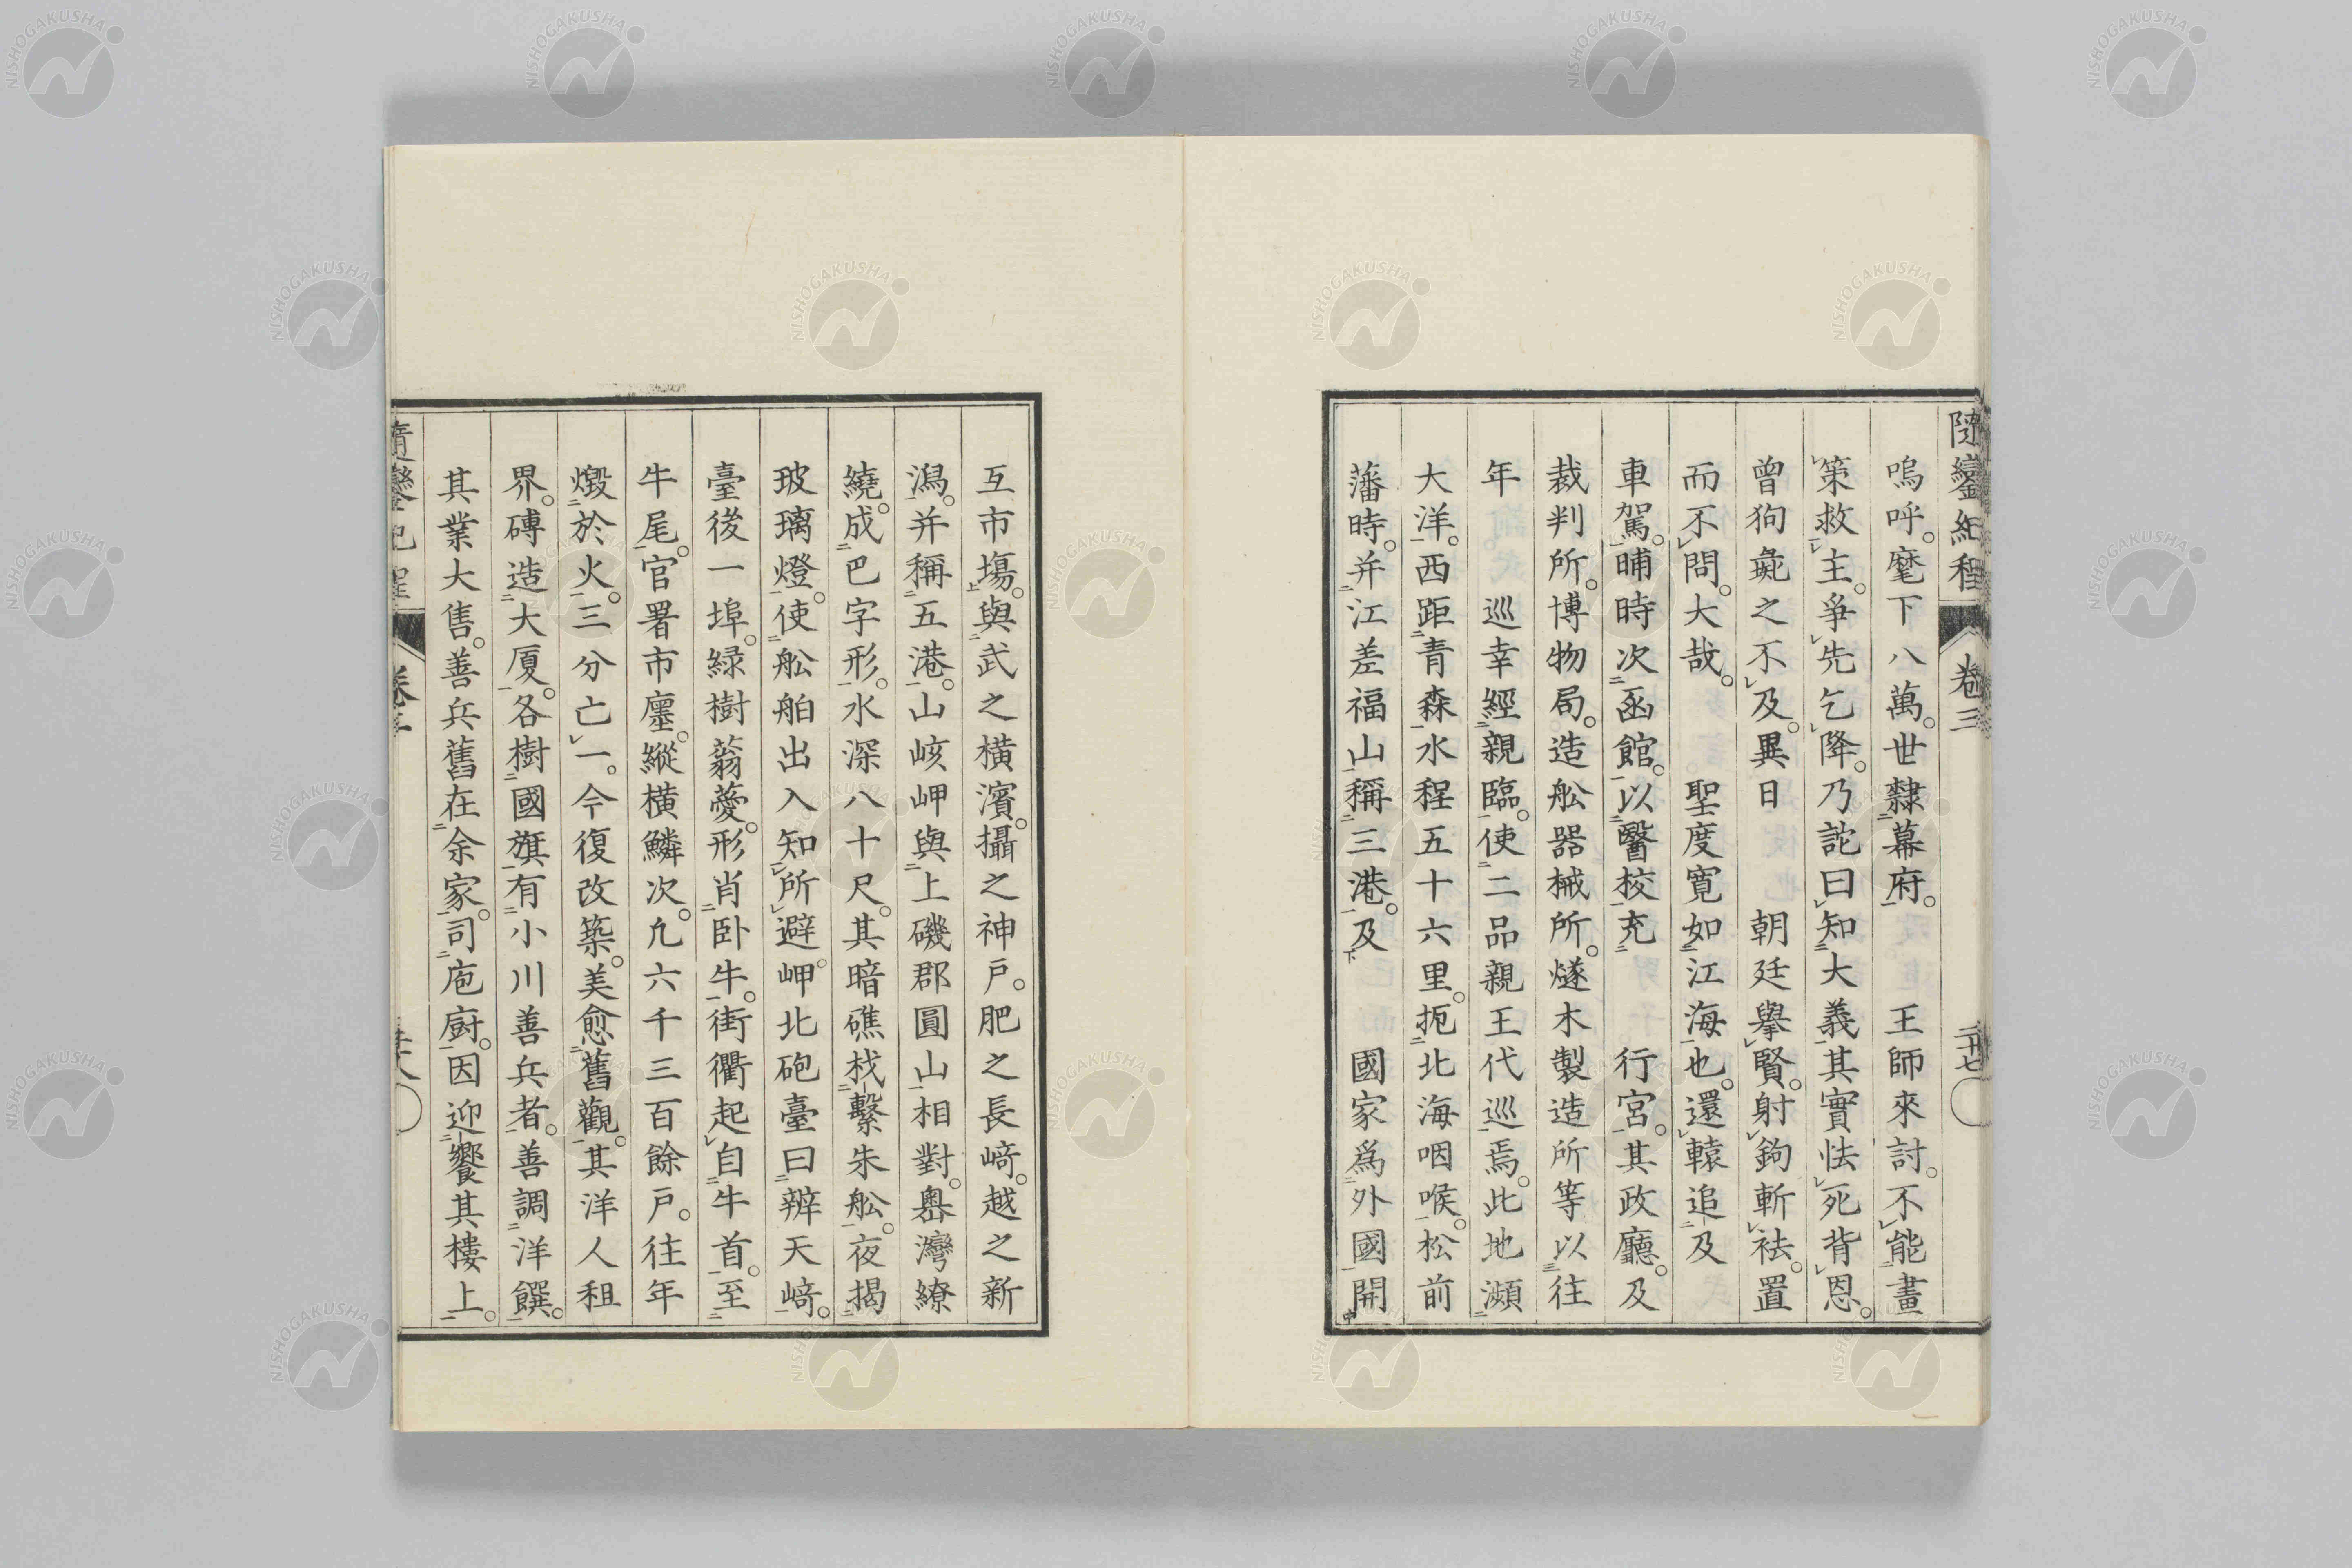 隨鑾紀程 卷三 二十七
嗚呼。麾下八萬。世隸幕府。 王師來討。不能畫
策救主。爭先乞降。乃詑曰知大義其實怯死背恩。
曾狗彘之不及。異日 朝廷擧賢。射鉤斬袪。置
而不問。大哉。 聖度寬如江海也。還轅追及
車駕。晡時次函館。以醫校充 行宮。其政廳。及
裁判所。博物局。造舩器械所。燧木製造所等以往
年 巡幸經親臨。使二品親王代巡焉。此地瀕
大洋。西距青森水程五十六里。扼北海咽喉。松前
藩時。并江差福山稱三港。及 國家爲外國開
互市塲。與武之橫濱。攝之神戶。肥之長﨑。越之新
潟。并稱五港。山峐岬與上磯郡圓山相對。嶴灣繚
繞。成巴字形。水深八十尺。其暗礁栈繫朱舩。夜揭
玻璃燈。使舩舶出入知所避。岬北砲臺曰辨天﨑。
臺後一埠。綠樹蓊薆。形肖臥牛。街衢起自牛首。至
牛尾。官署市廛。縱橫鱗次。凡六千三百餘戶。往年
燬於火。三分亡一。今復改築。美愈舊觀。其洋人租
界。磚造大厦。各樹國旗。有小川善兵者。善調洋饌。
其業大售。善兵舊在余家。司庖廚。因迎饗其樓上。
隨鑾紀程 卷三 二十八
NISHOGAKUSHA